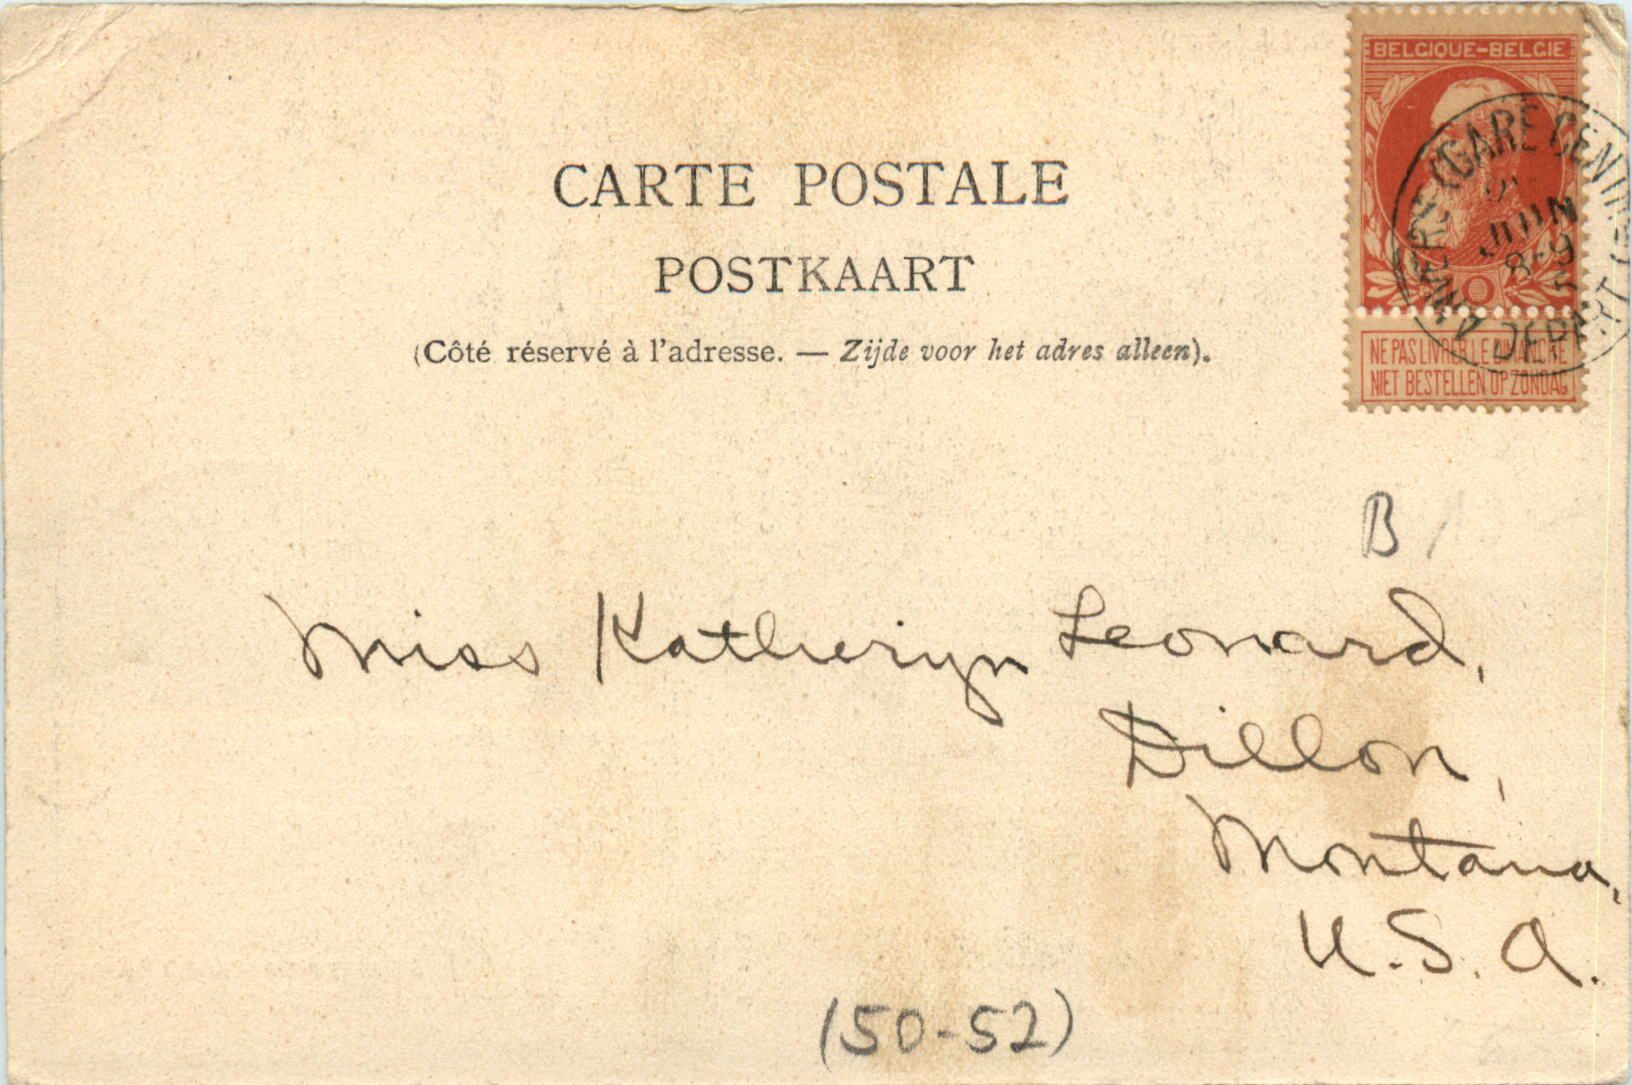 BELGIQUE-BELGIE
ANVERS (GARE CENTR
JUIN
8-9
5
DEPART
NE PAS LIVRER LE DIMANCHE
NIET BESTELLEN OP ZONDAG
CARTE POSTALE
POSTKAART
(Côté réservé à l'adresse. — Zijde voor het adres alleen).
B
Miss Katheryn Leonard,
Dillon,
Montana,
U.S.A.
(50-52)